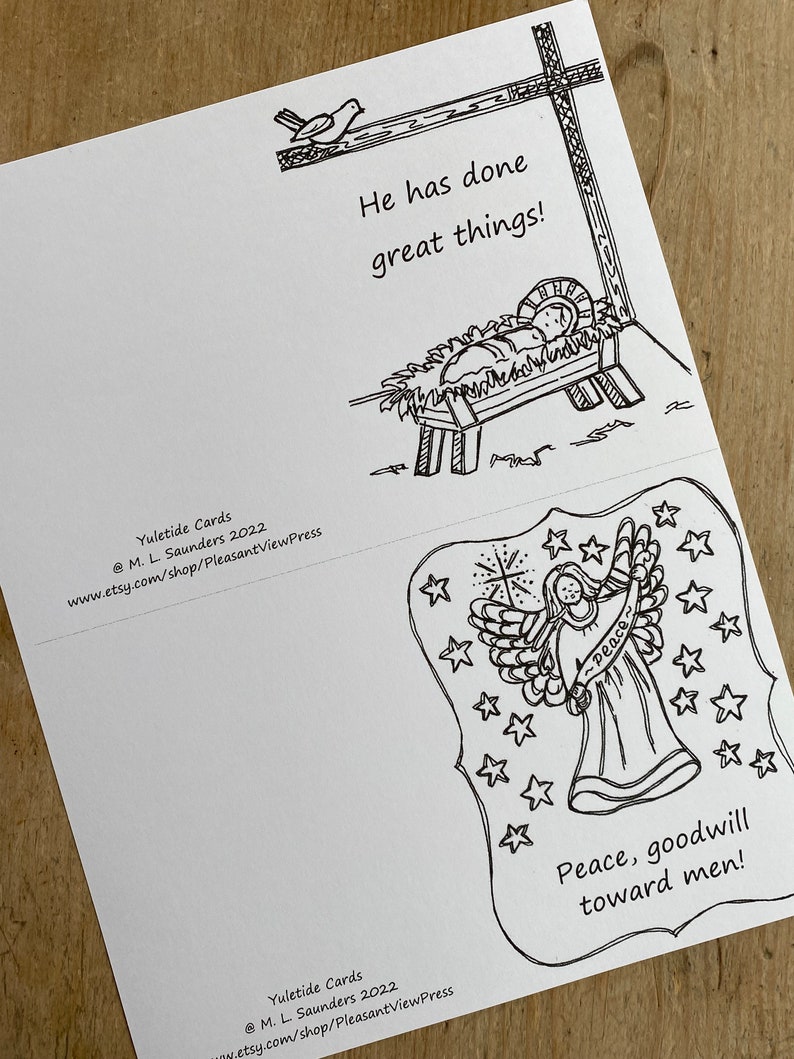 He has done
great things!
Yuletide Cards
@ M. L. Saunders 2022
www.etsy.com/shop/PleasantViewPress
~peace~
Peace, goodwill
toward men!
Yuletide Cards
@ M. L. Saunders 2022
www.etsy.com/shop/PleasantViewPress